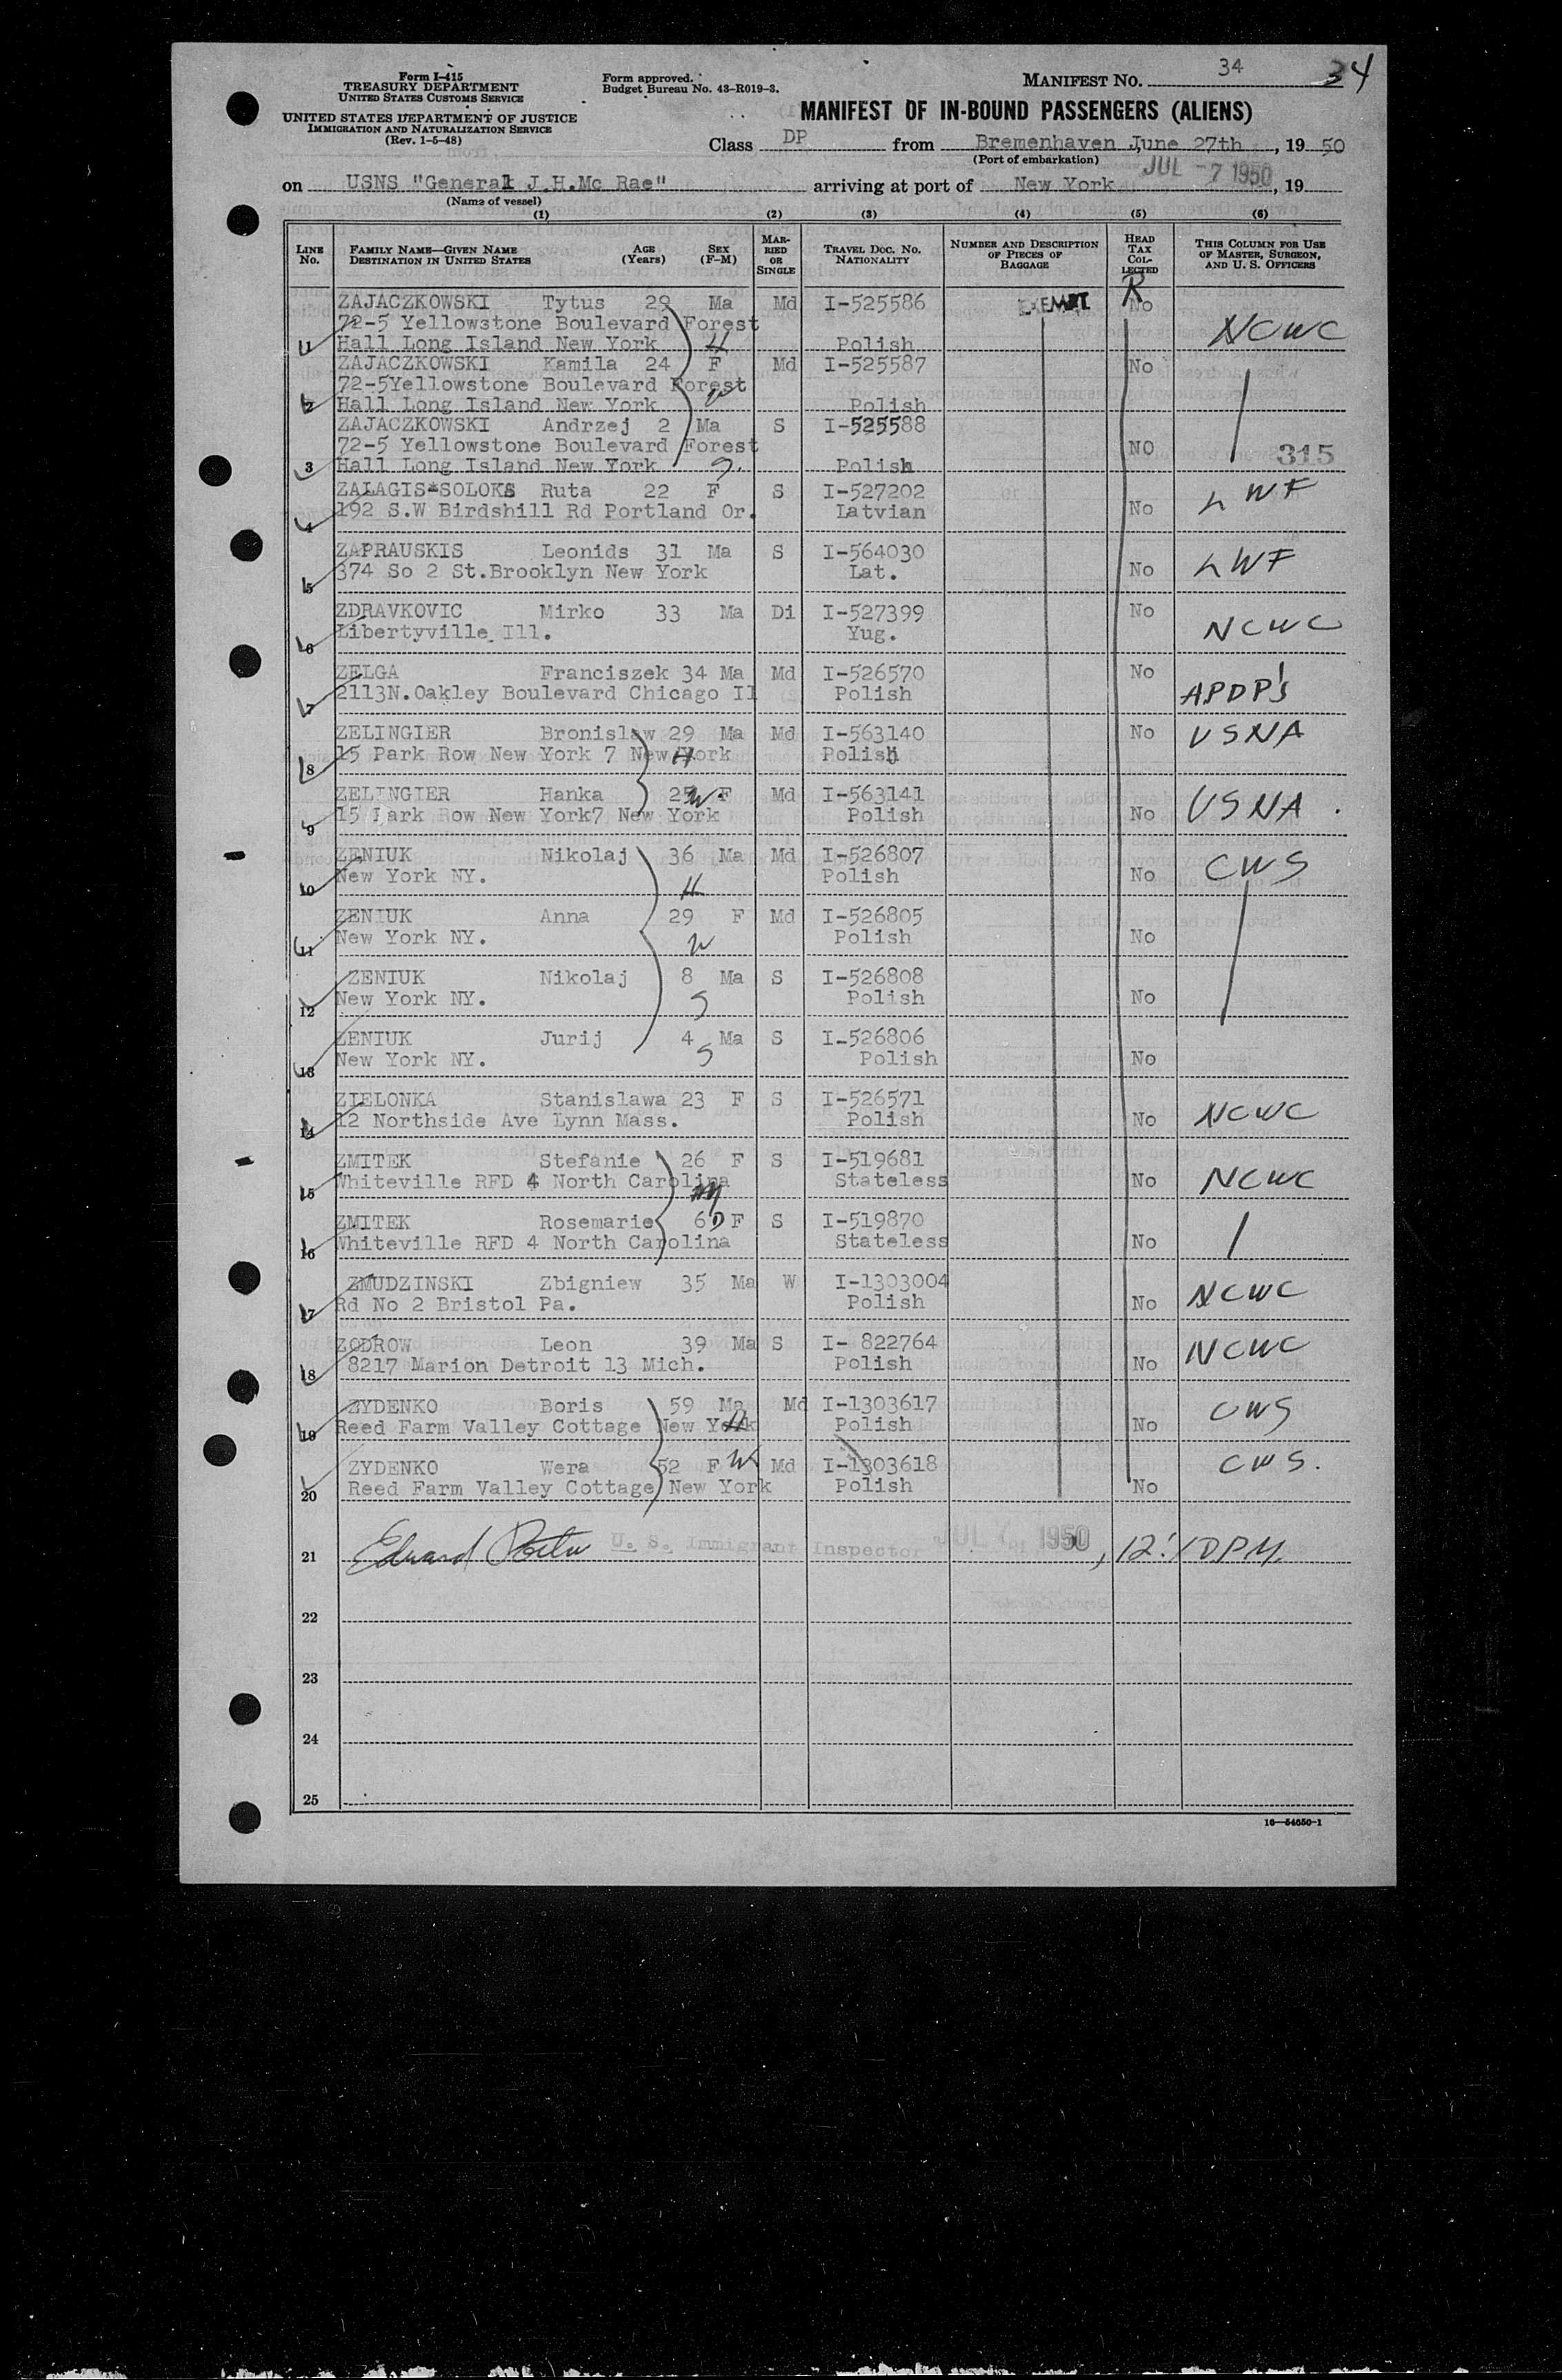 Form I-415
TREASURY DEPARTMENT
UNITED STATES CUSTOMS SERVICE
UNITED STATES DEPARTMENT OF JUSTICE
IMMIGRATION AND NATURALIZATION SERVICE
(Rev. 1-5-48)
Form approved.
Budget Bureau No. 43-R019-3.
MANIFEST NO. 34 34
MANIFEST OF IN-BOUND PASSENGERS (ALIENS)
Class DP from Bremenhaven June 27th, 19 50
(Port of embarkation)
on USNS "General J.H.Mc Rae" arriving at port of New York JUL -7 1950, 19
(Name of vessel)
(1) (2) (3) (4) (5) (6)
LINE No. FAMILY NAME—GIVEN NAME DESTINATION IN UNITED STATES AGE (Years) SEX (F-M) MARRIED OR SINGLE TRAVEL DOC. NO. NATIONALITY NUMBER AND DESCRIPTION OF PIECES OF BAGGAGE HEAD TAX COLLECTED THIS COLUMN FOR USE OF MASTER, SURGEON, AND U. S. OFFICERS
ZAJACZKOWSKI Tytus 29 Ma Md I-525586 EXEMPT R No
72-5 Yellowstone Boulevard Forest NCWC
1 Hall Long Island New York H Polish
ZAJACZKOWSKI Kamila 24 F Md I-525587 No
72-5Yellowstone Boulevard Forest W
2 Hall Long Island New York Polish
ZAJACZKOWSKI Andrzej 2 Ma S I-525588
72-5 Yellowstone Boulevard Forest NO 315
3 Hall Long Island New York S. Polish
ZALAGIS*SOLOKS Ruta 22 F S I-527202 LWF
4 192 S.W Birdshill Rd Portland Or. Latvian No
ZAPRAUSKIS Leonids 31 Ma S I-564030 LWF
5 374 So 2 St.Brooklyn New York Lat. No
ZDRAVKOVIC Mirko 33 Ma Di I-527399 No
6 Libertyville Ill. Yug. NCWC
ZELGA Franciszek 34 Ma Md I-526570 No
7 2113N.Oakley Boulevard Chicago Il Polish APDP's
ZELINGIER Bronislaw 29 Ma Md I-563140 No USNA
8 15 Park Row New York 7 New York H Polish
ZELINGIER Hanka 25 W F Md I-563141
9 15 Park Row New York7 New York Polish No USNA.
ZENIUK Nikolaj 36 Ma Md I-526807 CWS
10 New York NY. H Polish No
ZENIUK Anna 29 F Md I-526805
11 New York NY. W Polish No
ZENIUK Nikolaj 8 Ma S I-526808
12 New York NY. S Polish No
ZENIUK Jurij 4 Ma S I-526806
13 New York NY. S Polish No
ZIELONKA Stanislawa 23 F S I-526571
14 12 Northside Ave Lynn Mass. Polish No NCWC
ZMITEK Stefanie 26 F S I-519681
15 Whiteville RFD 4 North Carolina M Stateless No NCWC
ZMITEK Rosemarie 6 D F S I-519870
16 Whiteville RFD 4 North Carolina Stateless No
ZMUDZINSKI Zbigniew 35 Ma W I-1303004
17 Rd No 2 Bristol Pa. Polish No NCWC
ZODROW Leon 39 Ma S I- 822764
18 8217 Marion Detroit 13 Mich. Polish No NCWC
ZYDENKO Boris 59 Ma Md I-1303617 CWS
19 Reed Farm Valley Cottage New York H Polish No
ZYDENKO Wera 52 F W Md I-1303618 CWS.
20 Reed Farm Valley Cottage New York Polish No
21 Edward U. S. Immigrant Inspector JUL 7 1950, 12:10PM.
22
23
24
25
16—54650-1